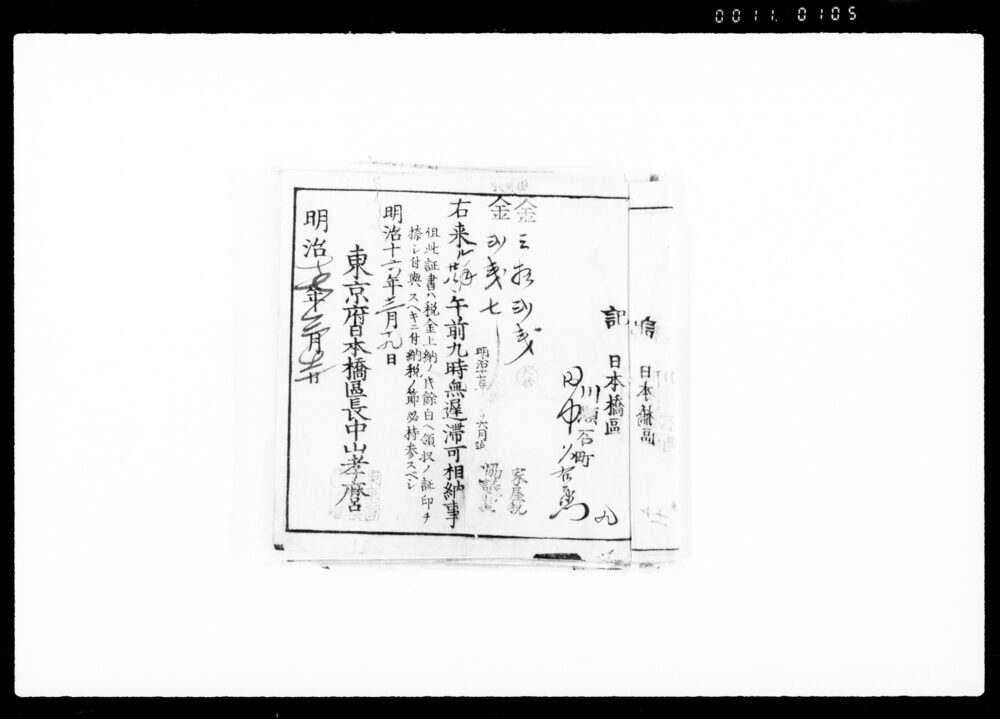 0011.0105
日本橋區
記
日本橋區
川瀬石町
田中
九
家屋税
金三拾弐銭
協議費
金弐銭七
明治十
六月迄
右来ル 日午前九時無遅滞可相納事
但此証書ハ税金上納ノ片餘白ヘ領収ノ証印ヲ
捺シ付與スヘキニ付納税ノ節必持参スベシ
明治十六年三月十九日
東京府日本橋區長中山孝麿
明治 年 月 日